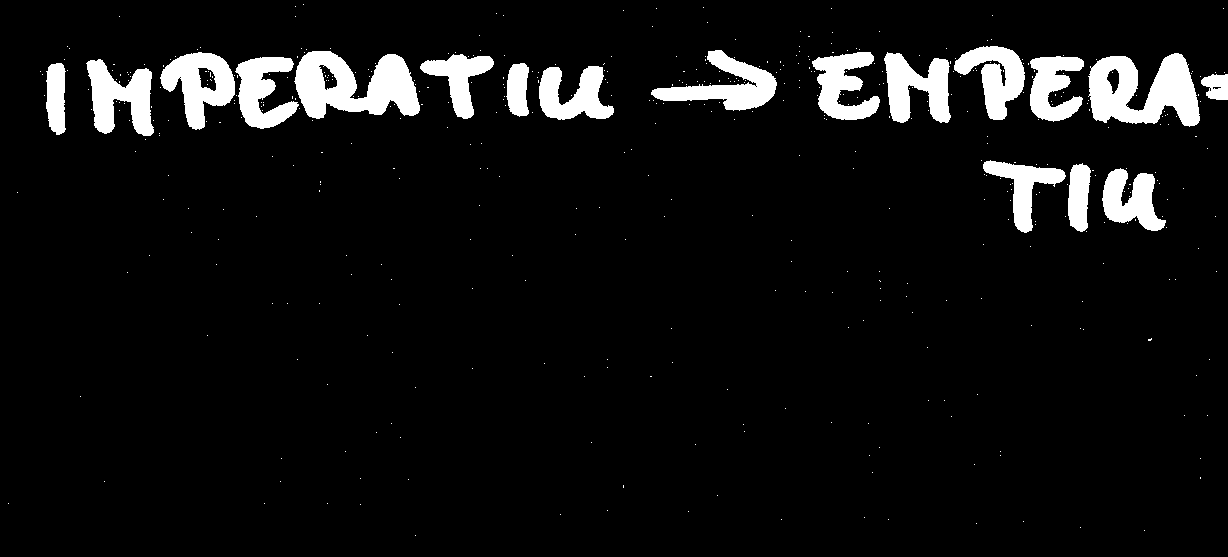 IMPERATIU → EMPERA-
TIU